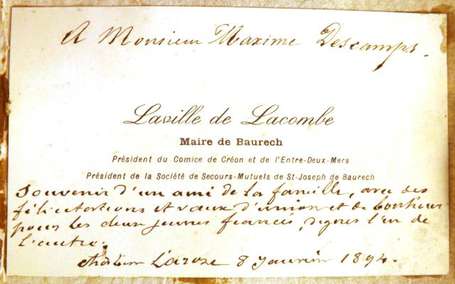 A Monsieur Maxime Descamps.
Lasille de Lacombe
Maire de Baurech
Président du Comice de Créon et de l'Entre-Deux-Mers
Président de la Société de Secours-Mutuels de St-Joseph de Baurech
Souvenir d'un ami de la famille, avec des
félicitations et vœux d'union et de bonheur
pour les deux jeunes fiancés, dignes l'un de
l'autre.
Laroze 8 Janvier 1894.